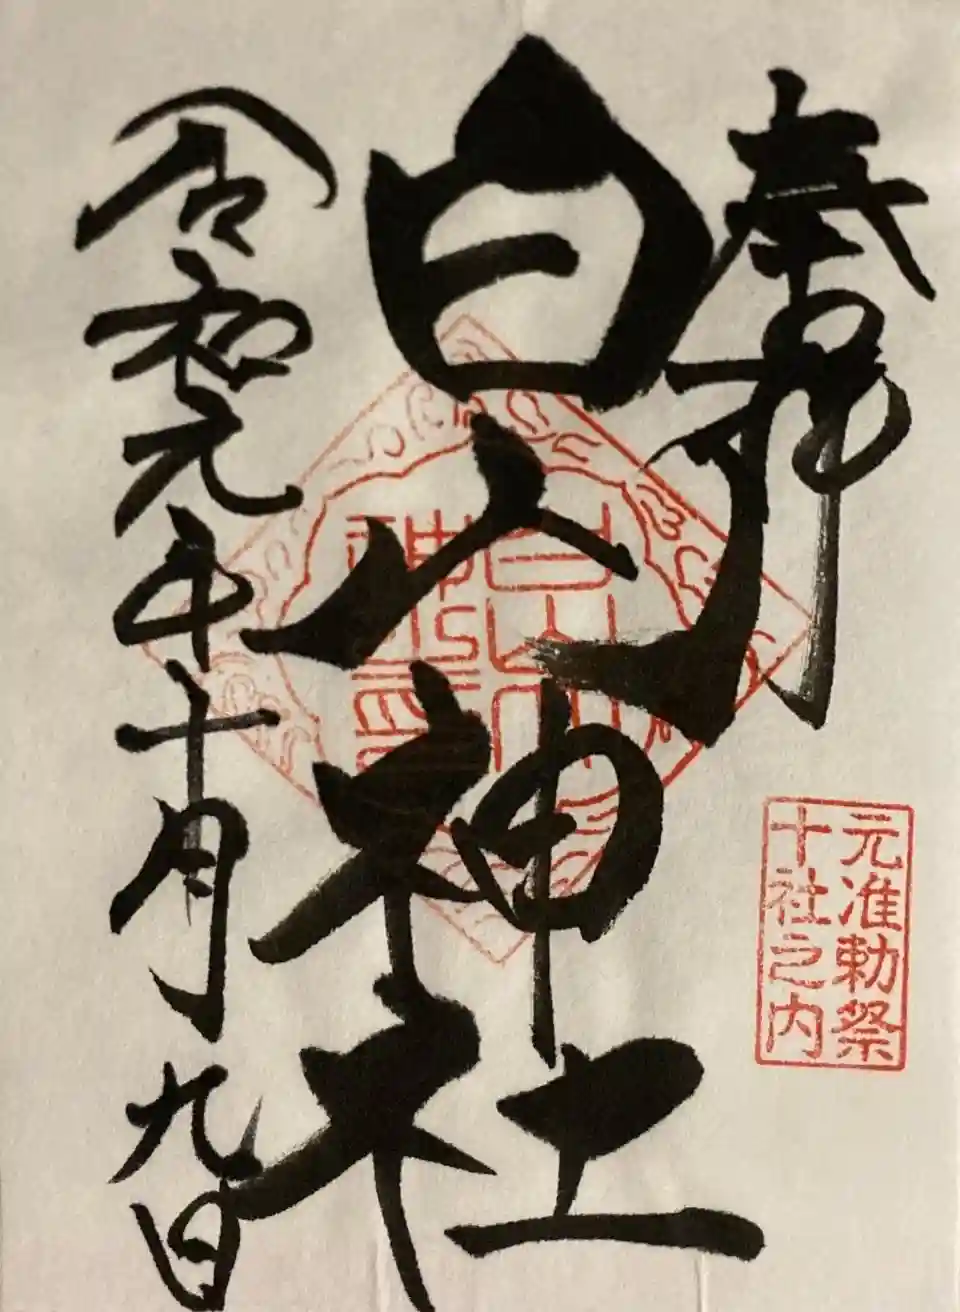 奉拝
元准勅祭
十社之内
白山神社
白山神社之印
令和元年十月九日